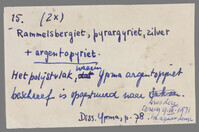 15. (2x)
Rammelsbergiet, pyrargyriet, zilver
+ argentopyriet.
waarin
Het polijstvlak, dat Ypma argentopyriet
beschreef is opgestuurd naar
Diss. Ypma, p. 78